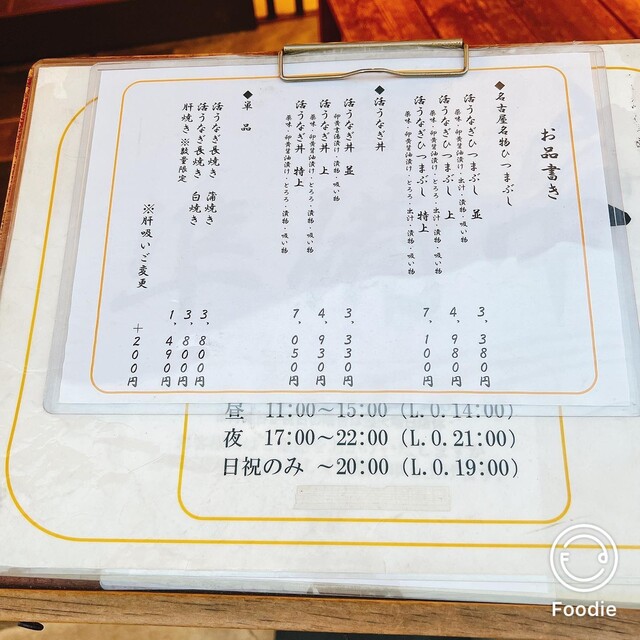 お品書き
◆名古屋名物ひつまぶし
活うなぎひつまぶし 並 3,380円
薬味・卵黄醤油漬け・出汁・漬物・吸い物
活うなぎひつまぶし 上 4,980円
薬味・卵黄醤油漬け・とろろ・出汁・漬物・吸い物
活うなぎひつまぶし 特上 7,100円
薬味・卵黄醤油漬け・とろろ・出汁・漬物・吸い物
◆活うなぎ丼
活うなぎ丼 並 3,330円
卵黄醤油漬け・漬物・吸い物
活うなぎ丼 上 4,930円
薬味・卵黄醤油漬け・とろろ・漬物・吸い物
活うなぎ丼 特上 7,050円
薬味・卵黄醤油漬け・とろろ・漬物・吸い物
◆単品
活うなぎ長焼き 蒲焼き 3,800円
活うなぎ長焼き 白焼き 3,800円
肝焼き ※数量限定 1,490円
※肝吸いご変更 +200円
昼 11:00~15:00 (L.O.14:00)
夜 17:00~22:00 (L.O.21:00)
日祝のみ ~20:00 (L.O.19:00)
Foodie